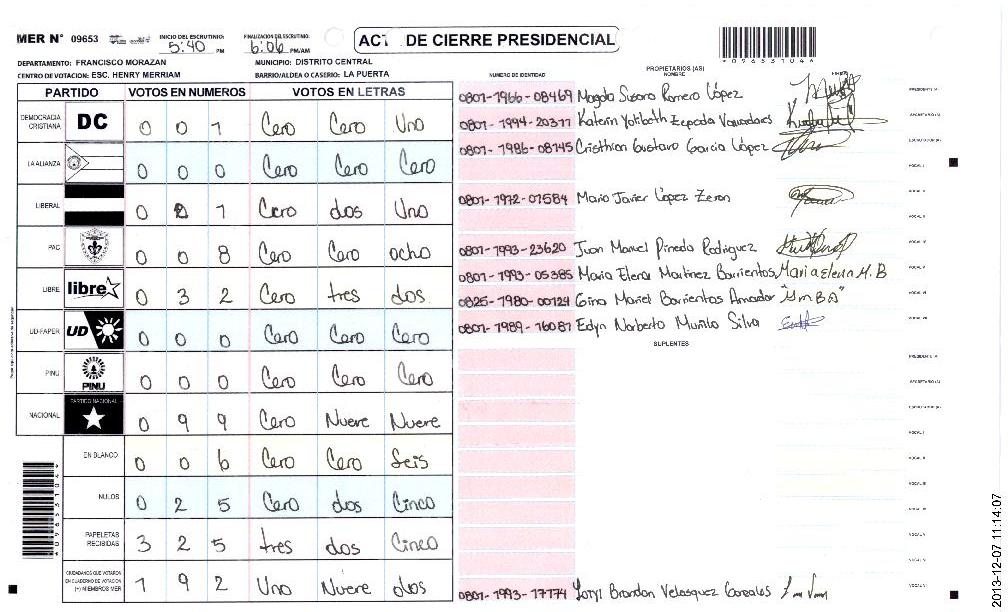 MER N° 09653
INICIO DEL ESCRUTINIO: 5:40 PM
FINALIZACION DEL ESCRUTINIO: 6:06 PM/AM
ACT DE CIERRE PRESIDENCIAL
*0965310 4*
DEPARTAMENTO: FRANCISCO MORAZAN
MUNICIPIO: DISTRITO CENTRAL
CENTRO DE VOTACION: ESC. HENRY MERRIAM
BARRIO/ALDEA O CASERIO: LA PUERTA
PARTIDO VOTOS EN NUMEROS VOTOS EN LETRAS
DEMOCRACIA CRISTIANA DC 0 0 1 Cero Cero Uno
LA ALIANZA 0 0 0 Cero Cero Cero
LIBERAL 0 2 1 Cero dos Uno
PAC 0 0 8 Cero Cero ocho
LIBRE libre 0 3 2 Cero tres dos
UD-FAPER UD 0 0 0 Cero Cero Cero
PINU PINU 0 0 0 Cero Cero Cero
NACIONAL PARTIDO NACIONAL 0 9 9 Cero Nueve Nueve
EN BLANCO 0 0 6 Cero Cero Seis
NULOS 0 2 5 Cero dos Cinco
PAPELETAS RECIBIDAS 3 2 5 tres dos Cinco
CIUDADANOS QUE VOTARON EN CUADERNO DE VOTACION (+) MIEMBROS MER 1 9 2 Uno Nueve dos
NUMERO DE IDENTIDAD
PROPIETARIOS (AS)
NOMBRE
FIRMA
0801-1966-08469 Magda Suzana Romero López PRESIDENTE (A)
0801-1994-20377 Katerin Yolibeth Zepeda SECRETARIO (A)
0801-1986-08145 Cristhian Gustavo Garcia López ESCRUTADOR (A)
VOCAL I
0801-1972-07584 Mario Javier López Zeron VOCAL II
VOCAL III
0801-1993-23620 Juan Manuel Pineda Rodriguez VOCAL IV
0801-1993-05385 Maria Elena Martinez Barrientos Maria elena M. B VOCAL V
0825-1980-00124 Gina Mariel Barrientos Amador "GMBA" VOCAL VI
0801-1989-16087 Edyn Norberto Murillo Silva VOCAL VII
SUPLENTES
PRESIDENTE (A)
SECRETARIO (A)
ESCRUTADOR (A)
VOCAL I
VOCAL II
VOCAL III
VOCAL IV
VOCAL V
VOCAL VI
0801-1993-17774 Brandon Velasquez VOCAL VII
2013-12-07 11:14:07